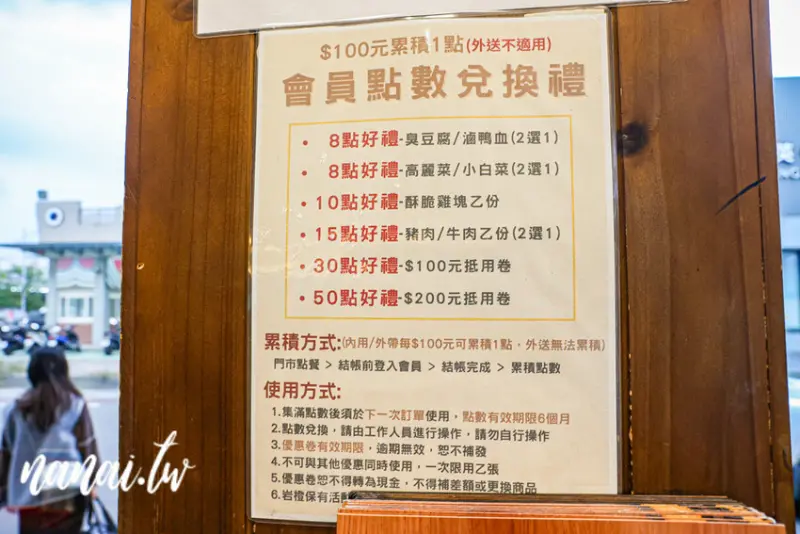 $100元累積1點(外送不適用)
會員點數兌換禮
• 8點好禮-臭豆腐/滷鴨血(2選1)
• 8點好禮-高麗菜/小白菜(2選1)
• 10點好禮-酥脆雞塊乙份
• 15點好禮-豬肉/牛肉乙份(2選1)
• 30點好禮-$100元抵用卷
• 50點好禮-$200元抵用卷
累積方式:(內用/外帶每$100元可累積1點，外送無法累積)
門市點餐 > 結帳前登入會員 > 結帳完成 > 累積點數
使用方式:
1.集滿點數後須於下一次訂單使用，點數有效期限6個月
2.點數兌換，請由工作人員進行操作，請勿自行操作
3.優惠卷有效期限，逾期無效，恕不補發
4.不可與其他優惠同時使用，一次限用乙張
5.優惠卷恕不得轉為現金，不得補差額或更換商品
6.岩橙保有活動
nanai.tw